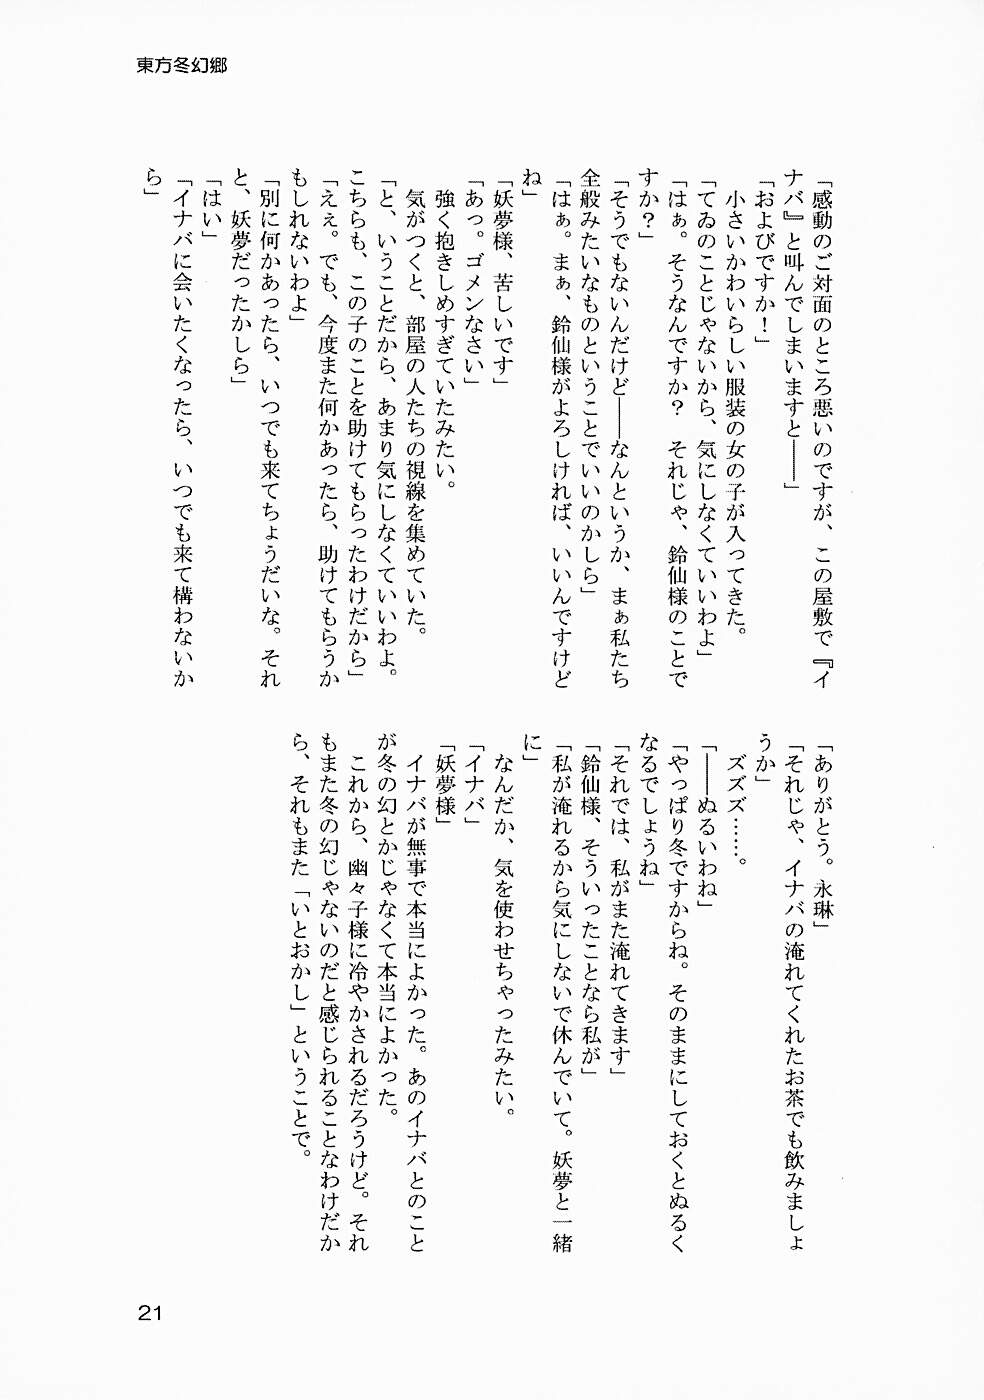 東方冬幻郷
「感動のご対面のところ悪いのですが、この屋敷で『イ
ナバ』と叫んでしまいますと――」
「およびですか！」
　小さいかわいらしい服装の女の子が入ってきた。
「てゐのことじゃないから、気にしなくていいわよ」
「はぁ。そうなんですか？　それじゃ、鈴仙様のことで
すか？」
「そうでもないんだけど――なんというか、まぁ私たち
全般みたいなものということでいいのかしら」
「はぁ。まぁ、鈴仙様がよろしければ、いいんですけど
ね」
「妖夢様、苦しいです」
「あっ。ゴメンなさい」
　強く抱きしめすぎていたみたい。
　気がつくと、部屋の人たちの視線を集めていた。
「と、いうことだから、あまり気にしなくていいわよ。
こちらも、この子のことを助けてもらったわけだから」
「えぇ。でも、今度また何かあったら、助けてもらうか
もしれないわよ」
「別に何かあったら、いつでも来てちょうだいな。それ
と、妖夢だったかしら」
「はい」
「イナバに会いたくなったら、いつでも来て構わないか
ら」
「ありがとう。永琳」
「それじゃ、イナバの淹れてくれたお茶でも飲みましょ
うか」
　ズズズ……。
「――ぬるいわね」
「やっぱり冬ですからね。そのままにしておくとぬるく
なるでしょうね」
「それでは、私がまた淹れてきます」
「鈴仙様、そういったことなら私が」
「私が淹れるから気にしないで休んでいて。妖夢と一緒
に」
　なんだか、気を使わせちゃったみたい。
「イナバ」
「妖夢様」
　イナバが無事で本当によかった。あのイナバとのこと
が冬の幻とかじゃなくて本当によかった。
　これから、幽々子様に冷やかされるだろうけど。それ
もまた冬の幻じゃないのだと感じられることなわけだか
ら、それもまた「いとおかし」ということで。
21